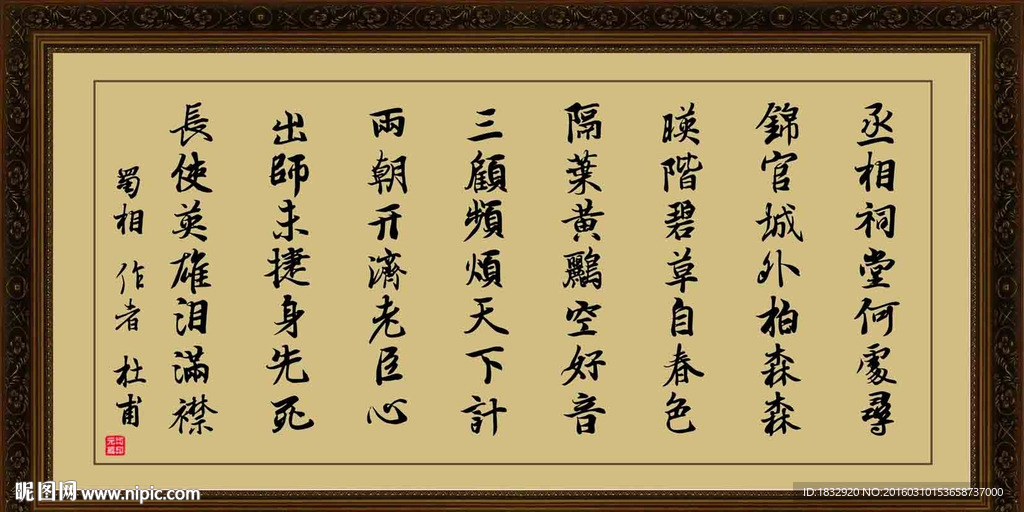 丞相祠堂何處尋
錦官城外柏森森
暎階碧草自春色
隔葉黃鸝空好音
三顧頻煩天下計
兩朝開濟老臣心
出師未捷身先死
長使英雄泪滿襟
蜀相 作者 杜甫
昵图网 www.nipic.com
ID:1832920 NO:20160310153658737000